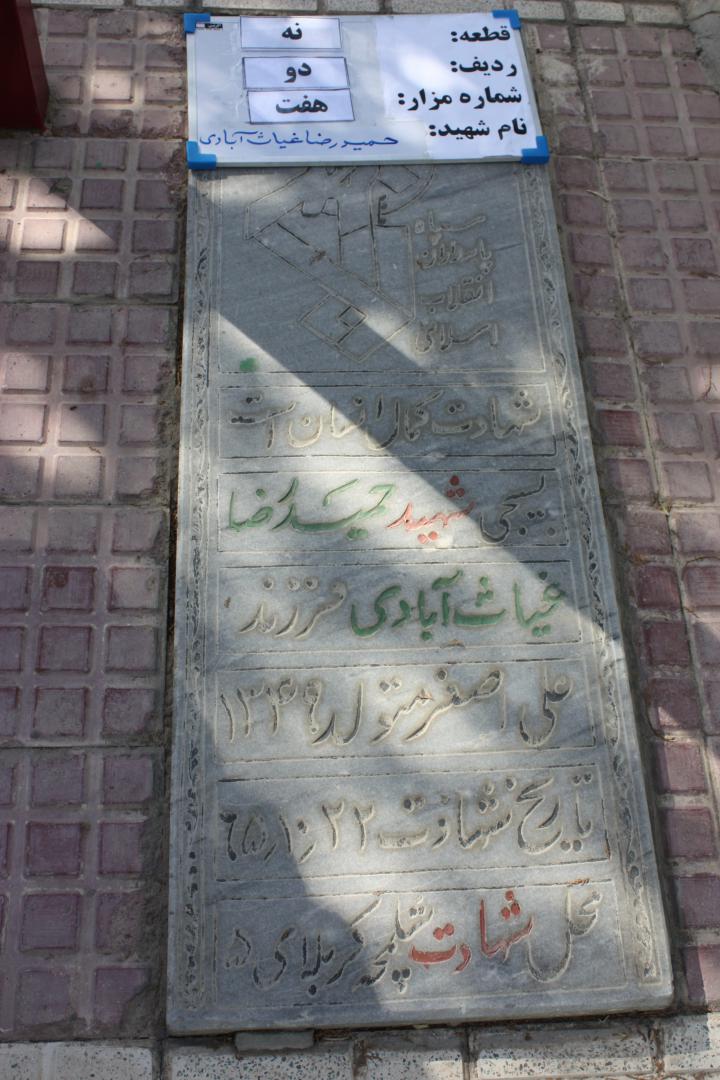 قطعه: نه
ردیف: دو
شماره مزار: هفت
نام شهید: حمیدرضا غیاث آبادی
سپاه
پاسداران
انقلاب
اسلامی
شهادت کمال انسان است
بسیجی شهید حمیدرضا
غیاث آبادی فرزند
علی اصغر متولد ۱۳۴۹
تاریخ شهادت ۲۲ر۱۰ر۶۵
محل شهادت شلمچه کربلای ۵